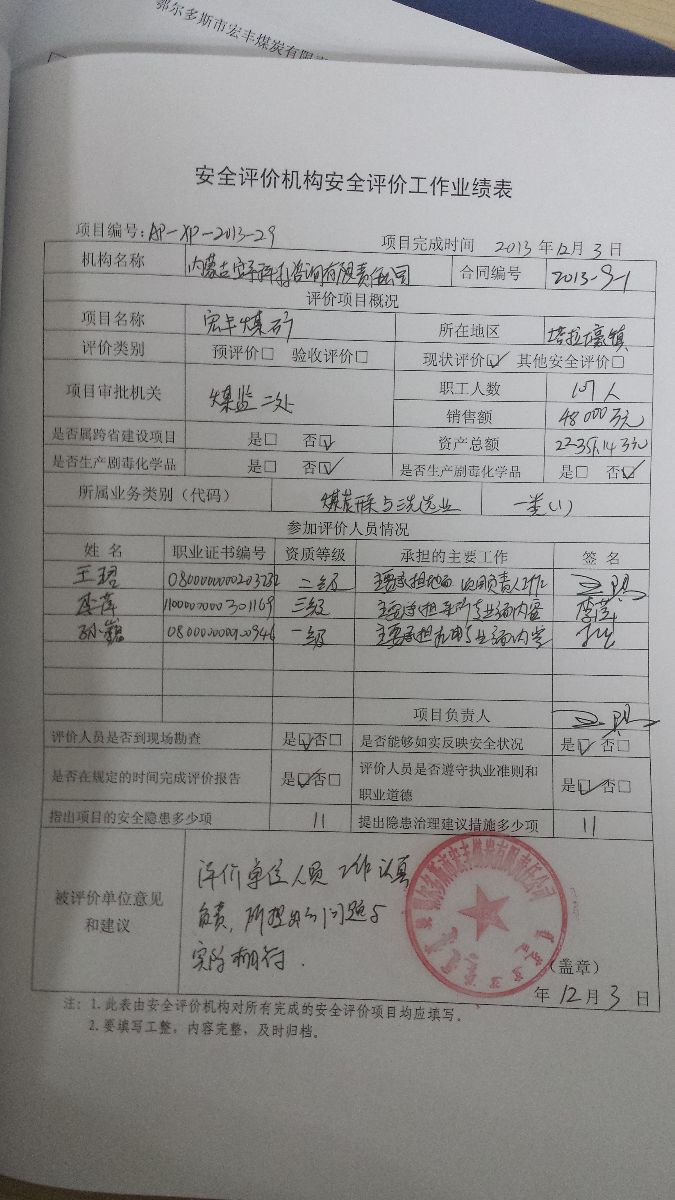 鄂尔多斯市宏丰煤炭有限
安全评价机构安全评价工作业绩表
项目编号: AP-XP-2013-29 项目完成时间 2013 年 12 月 3 日
机构名称 内蒙古 咨询有限责任公司 合同编号 2013-9-1
评价项目概况
项目名称 宏丰煤矿 所在地区 塔拉壕镇
评价类别 预评价□ 验收评价□ 现状评价☑ 其他安全评价□
项目审批机关 煤监二处 职工人数 107人
销售额 48000万元
是否属跨省建设项目 是□ 否☑ 资产总额 22351.14万元
是否生产剧毒化学品 是□ 否☑ 是否生产剧毒化学品 是□ 否☑
所属业务类别（代码） 煤炭开采与洗选业 一类(1)
参加评价人员情况
姓名 职业证书编号 资质等级 承担的主要工作 签名
王珺 二级 主要承担
李萍 1100000000301169 三级 主要承担 专业 内容 李萍
孙巍 一级 主要承担 专业 内容
项目负责人
评价人员是否到现场勘查 是☑否□ 是否能够如实反映安全状况 是☑ 否□
是否在规定的时间完成评价报告 是☑否□ 评价人员是否遵守执业准则和
职业道德 是☑否□
指出项目的安全隐患多少项 11 提出隐患治理建议措施多少项 11
被评价单位意见
和建议
评价单位人员工作认真
负责，所提出的问题与
实际相符.
（盖章）
年 12 月 3 日
注: 1.此表由安全评价机构对所有完成的安全评价项目均应填写。
2.要填写工整，内容完整，及时归档。